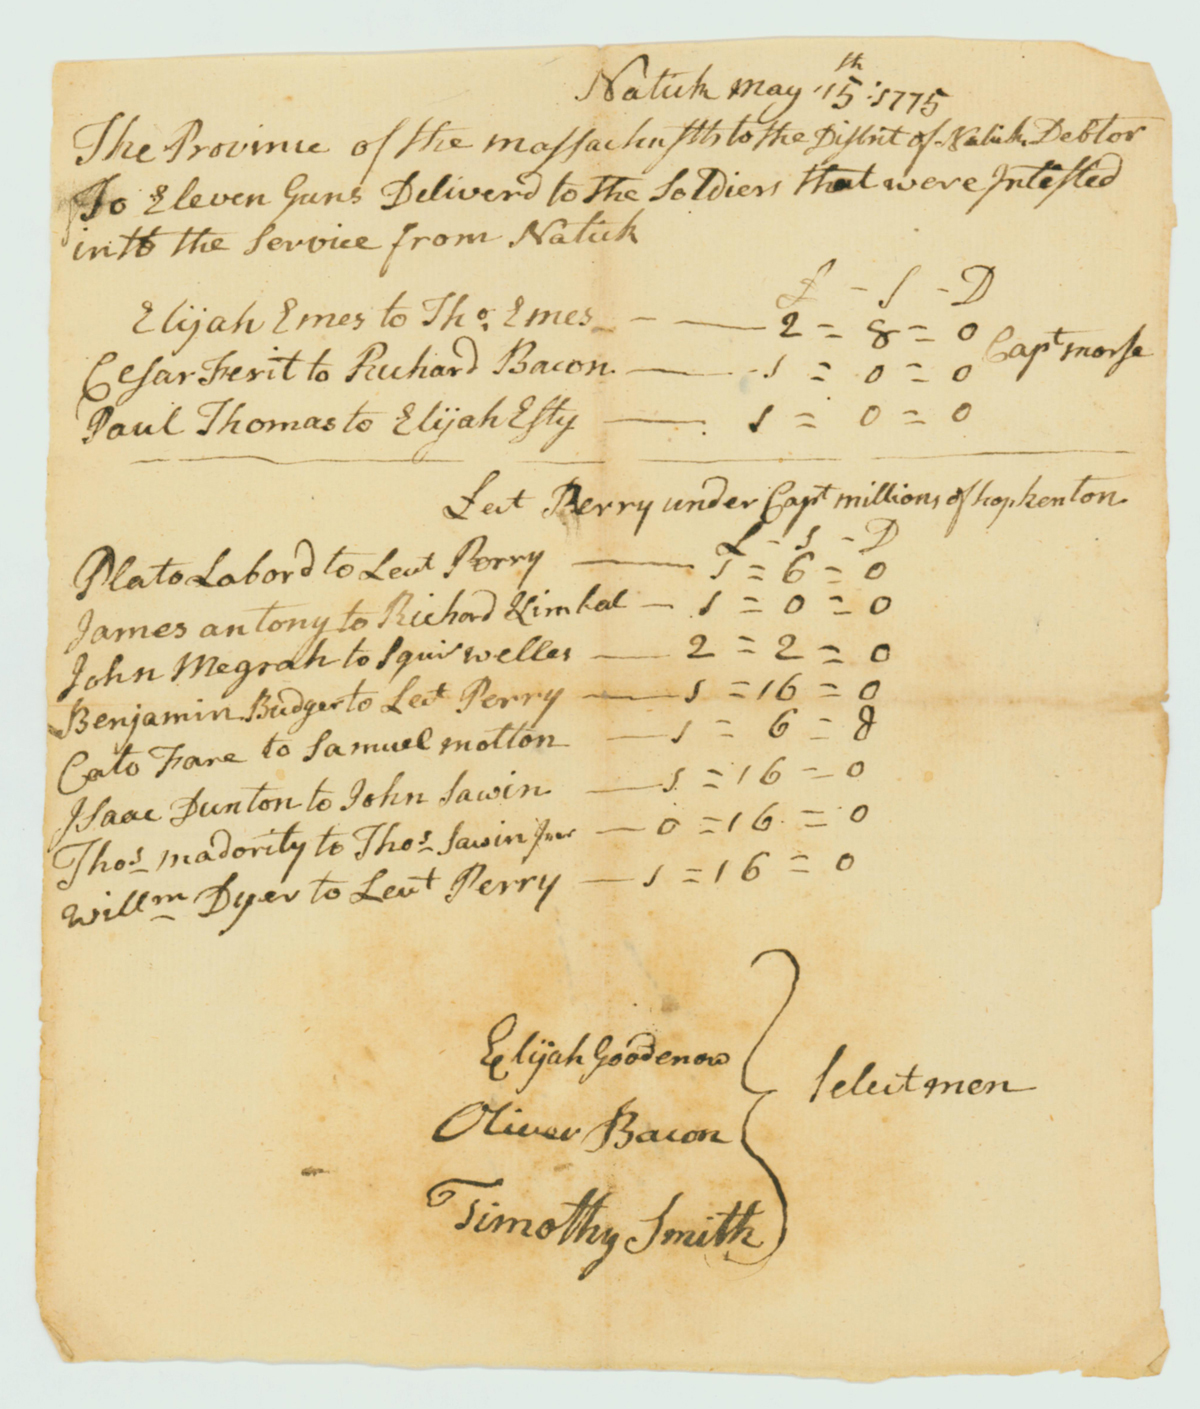 Natick may 15th: 1775
The Province of the massachustts to the District of Natick Debtor
To Eleven Guns Deliverd to the Soldiers that were Intested
into the Service from Natick
£ - S - D
Elijah Emes to Tho. Emes — 2 = 8 = 0
Capt morse
Cesar Ferit to Richard Bacon — 1 = 0 = 0
Paul Thomas to Elijah Esty — 1 = 0 = 0
Leut Perry under Capt millions of hopkenton
L - S - D
Plato Labord to Leut Perry — 1 = 6 = 0
James antony to Richard Kimbal — 1 = 0 = 0
John Megrah to Squir welles — 2 = 2 = 0
Benjamin Budger to Leut Perry — 1 = 16 = 0
Cato Fare to Samuel motton — 1 = 6 = 8
Isaac Dunton to John Sawin — 1 = 16 = 0
Thos madority to Thos Sawin Junr — 0 = 16 = 0
Willm Dyer to Leut Perry — 1 = 16 = 0
Elijah Goodenow
Selectmen
Oliver Bacon
Timothy Smith